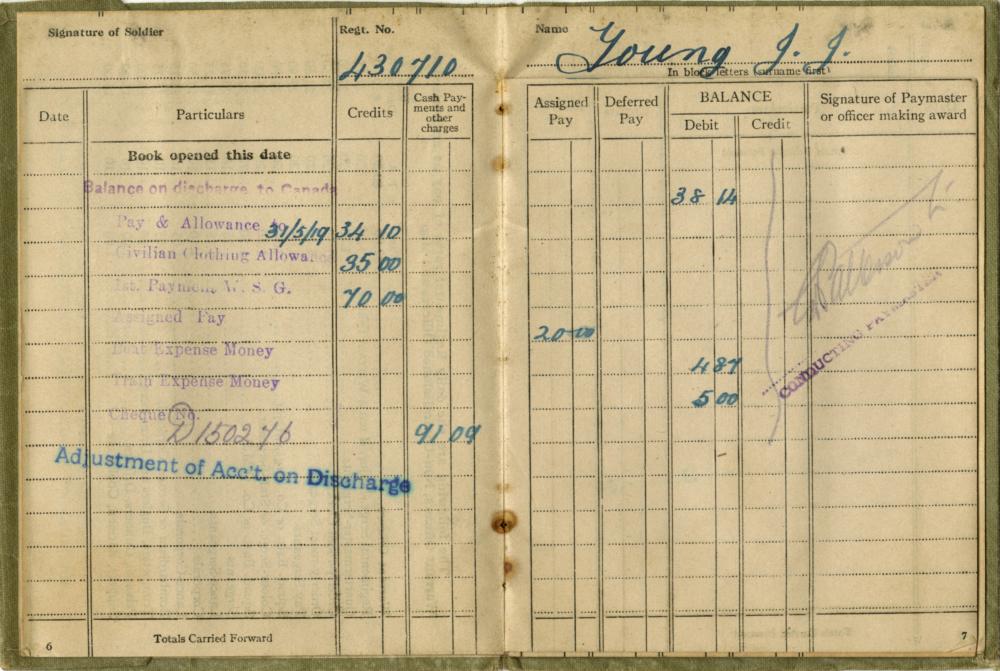 Signature of Soldier
Regt. No.
430710
Date
Particulars
Credits
Cash Pay-
ments and
other
charges
Book opened this date
Balance on discharge to Canada
Pay & Allowance to 31/5/19 34 10
Civilian Clothing Allowance 35 00
1st. Payment W. S. G. 70 00
Assigned Pay
Boat Expense Money
Train Expense Money
Cheque No.
D150276 91 09
Adjustment of Acc't. on Discharge
Totals Carried Forward
6
Name Young J. J.
In block letters (surname first)
Assigned
Pay
Deferred
Pay
BALANCE
Debit
Credit
Signature of Paymaster
or officer making award
38 14
20 00
4 87
5 00
CONDUCTING PAYMASTER
7